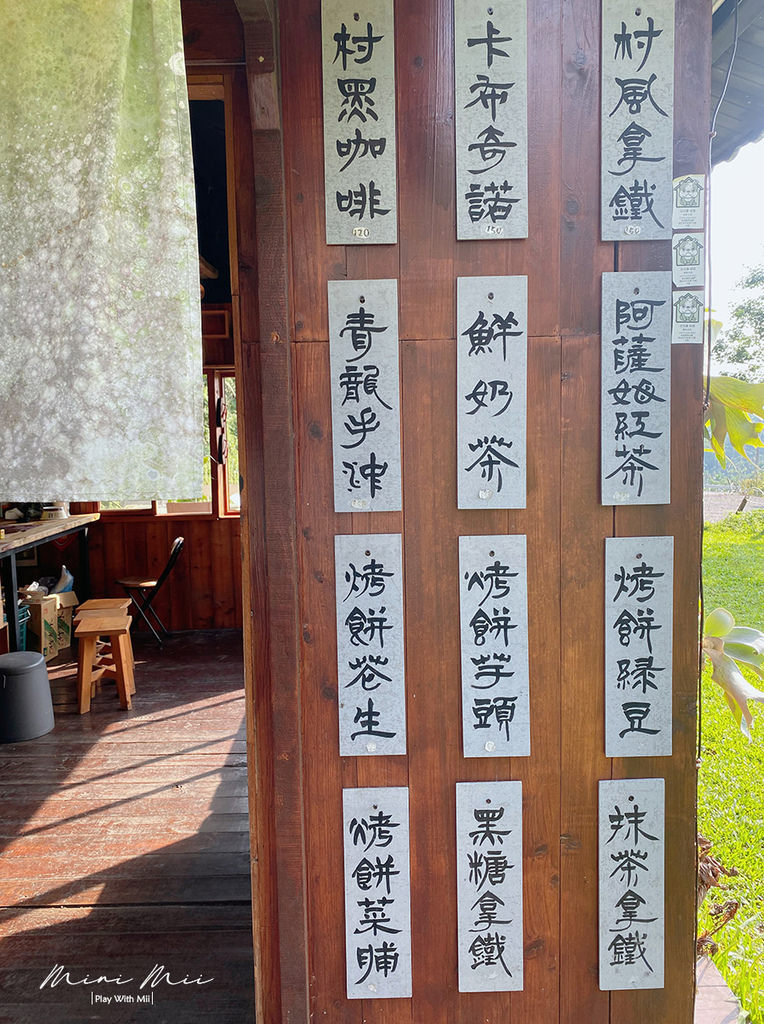 村黑咖啡
120
卡布奇諾
150
村風拿鐵
150
青龍手沖
鮮奶茶
阿薩姆紅茶
烤餅花生
烤餅芋頭
烤餅綠豆
烤餅菜脯
黑糖拿鐵
抹茶拿鐵
Mini Mii
Play With Mii